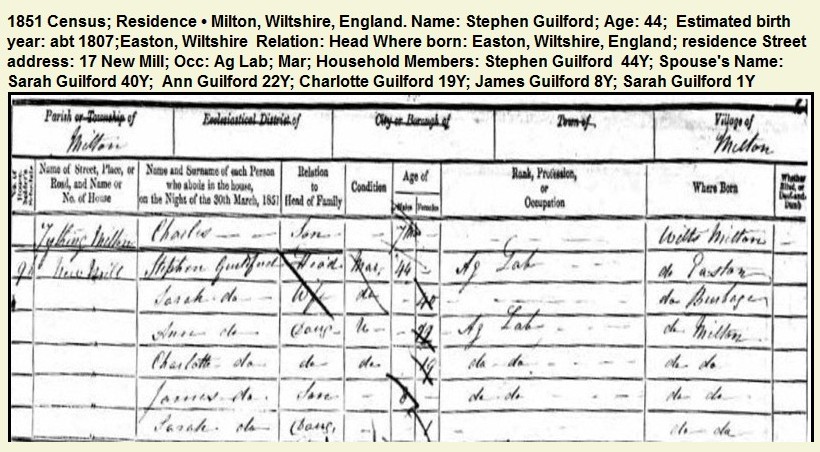 1851 Census; Residence • Milton, Wiltshire, England. Name: Stephen Guilford; Age: 44; Estimated birth
year: abt 1807;Easton, Wiltshire Relation: Head Where born: Easton, Wiltshire, England; residence Street
address: 17 New Mill; Occ: Ag Lab; Mar; Household Members: Stephen Guilford 44Y; Spouse's Name:
Sarah Guilford 40Y; Ann Guilford 22Y; Charlotte Guilford 19Y; James Guilford 8Y; Sarah Guilford 1Y
Parish or Township of Ecclesiastical District of City or Borough of Town of Village of
Milton Milton
Name of Street, Place, or Road, and Name or No. of House
Name and Surname of each Person who abode in the house, on the Night of the 30th March, 1851
Relation to Head of Family
Condition
Age of
Males Females
Rank, Profession, or Occupation
Where Born
Whether Blind, or Deaf-and-Dumb
Tything Milton Charles Son Wilts Milton
New Mill Stephen Guilford Head Mar 44 Ag Lab do Easton
Sarah do Wife do 40 do Burbage
Ann do Daug U 22 Ag Lab do Milton
Charlotte do do do 19 do do do do
James do Son 8 do do do do
Sarah do Daug 1 do do